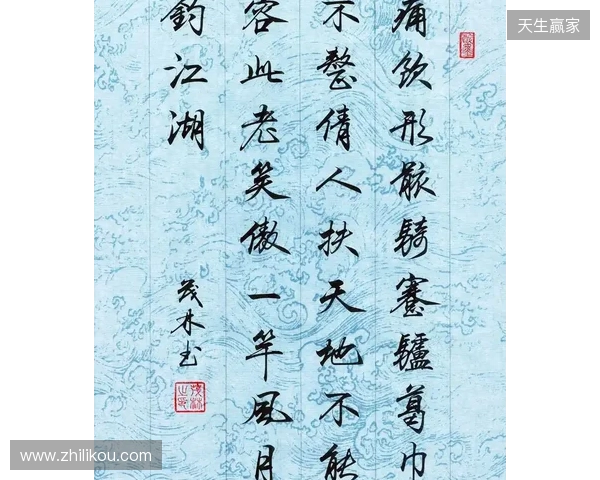 天生赢家
痛飲形骸騎蹇驢葛巾
不整倩人扶天地不能
容此老笑傲一竿風月
釣江湖
茂林书
www.zhilikou.com